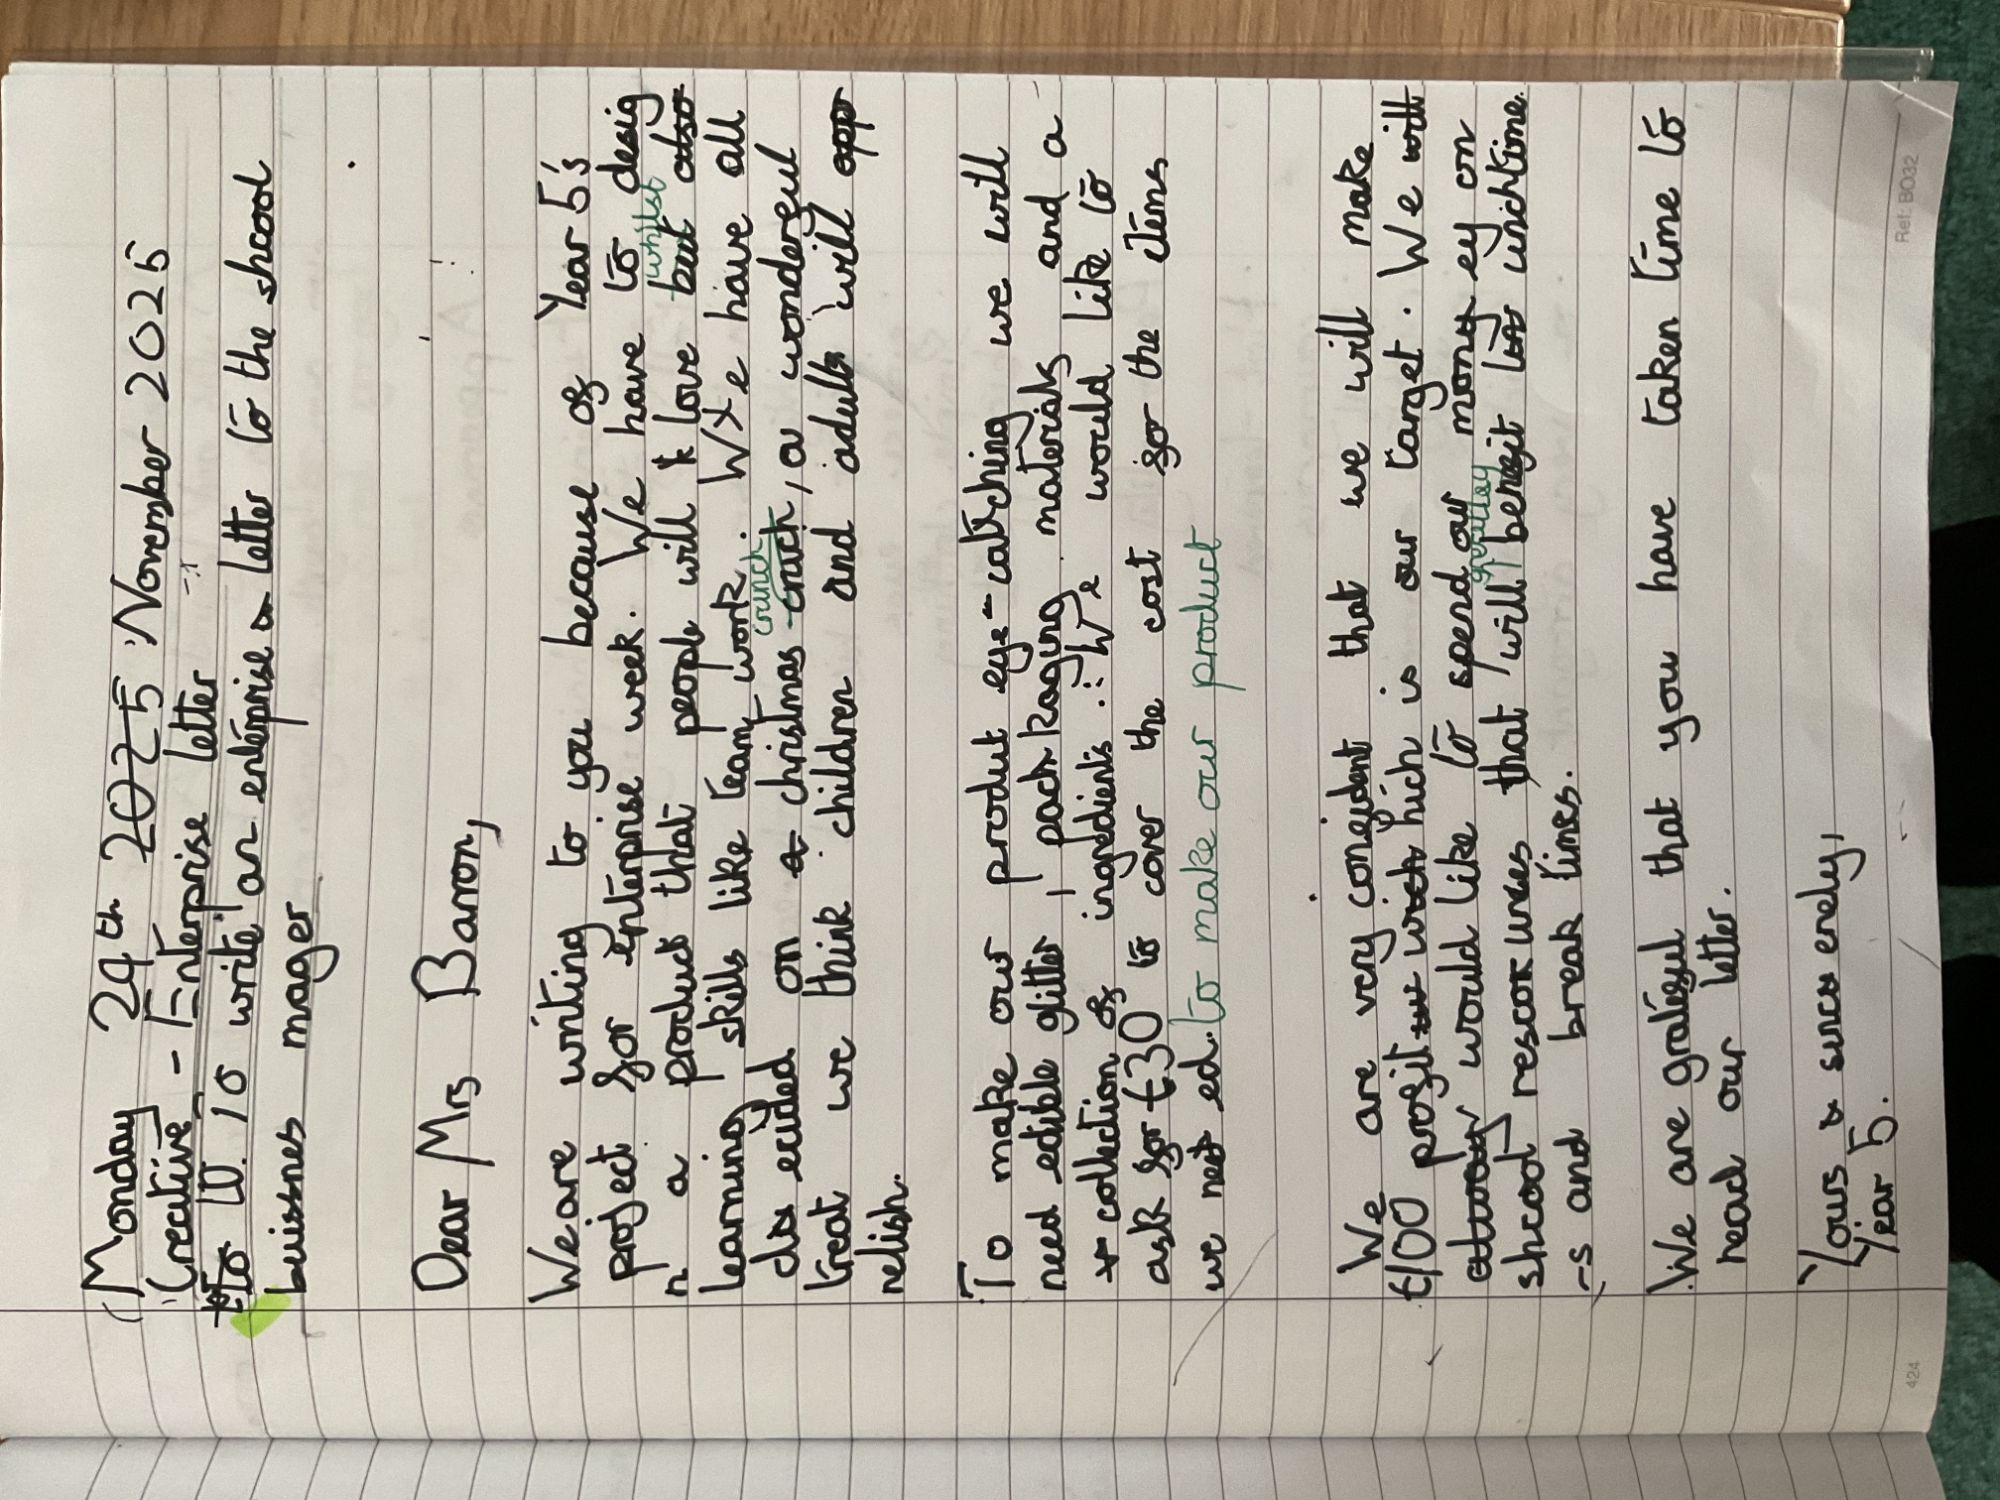 Monday 24th 2025 November 2025
Creative - Enterprise letter
to LO. to write an enterprise letter to the shcool
buissnes mager
Dear Mrs Barron,
We are writing to you because of Year 5's
project for enterprise week. We have to desig
whilst
n a product that people will love but also
learning skills like team work. We have all
crunch
decided on a christmas crack, a wonderful
treat we think children and adults will app
relish.
To make our product eye-catching we will
need edible glitter, packaging materials and a
collection of ingredients. We would like to
ask for £30 to cover the cost for the items
we need. to make our product
We are very confident that we will make
£100 profit which is our target. We will
would like to spend our money on
greatley
shcool rescorurses that will benefit us lunchtime
-s and break times.
We are grateful that you have taken time to
read our letter.
Yours sincerely,
Year 5.
424
Ref: BO32